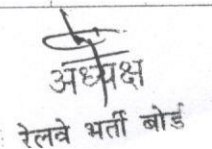 अध्यक्ष
रेलवे भर्ती बोर्ड